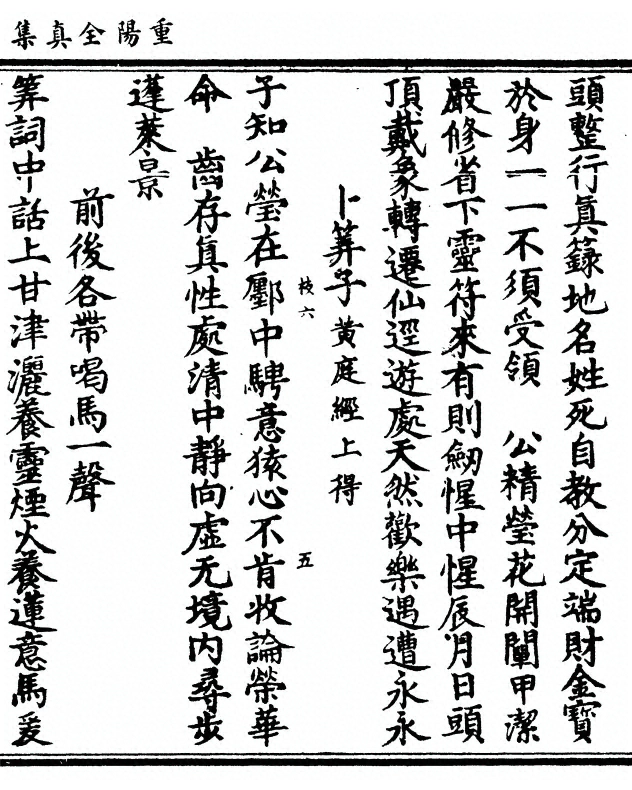 重陽全真集
頭整行真籙地名姓死自教分定端財金寶
於身一一不須受領　公精瑩花開闡甲潔
嚴修省下靈符來有則劒惺中惺辰月日頭
頂戴象轉遷仙逕遊處天然歡樂遇遭永永
卜筭子黃庭經上得
枝六　五
子知公瑩在酆中騁意猿心不肯收論榮華
命　齒存真性處清中靜向虛无境內尋步
蓬萊景
前後各帶喝馬一聲
筭詞中話上甘津灑養靈煙火養蓮意馬爰